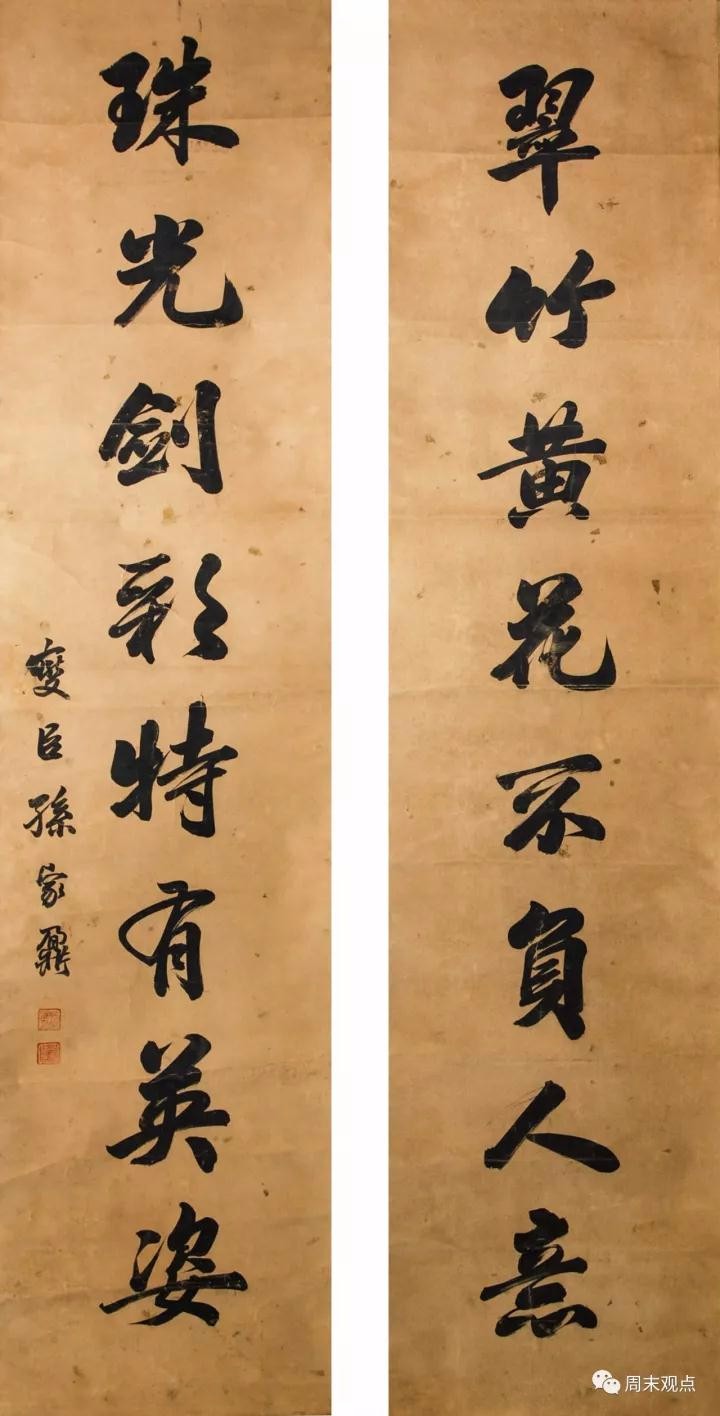 翠竹黄花不負人意
珠光劍彩特有英姿
燮臣孫家鼐
周末观点